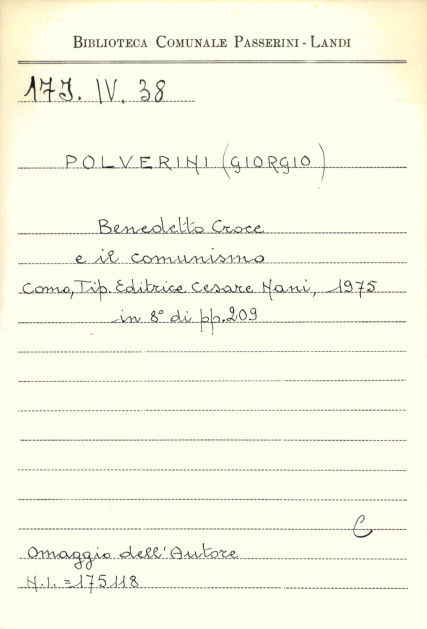 BIBLIOTECA COMUNALE PASSERINI - LANDI
17J. IV. 38
POLVERINI (GIORGIO)
Benedetto Croce
e il comunismo
Como, Tip. Editrice Cesare Nani, 1975
in 8° di pp. 209
C
Omaggio dell'Autore
N.I. = 175118